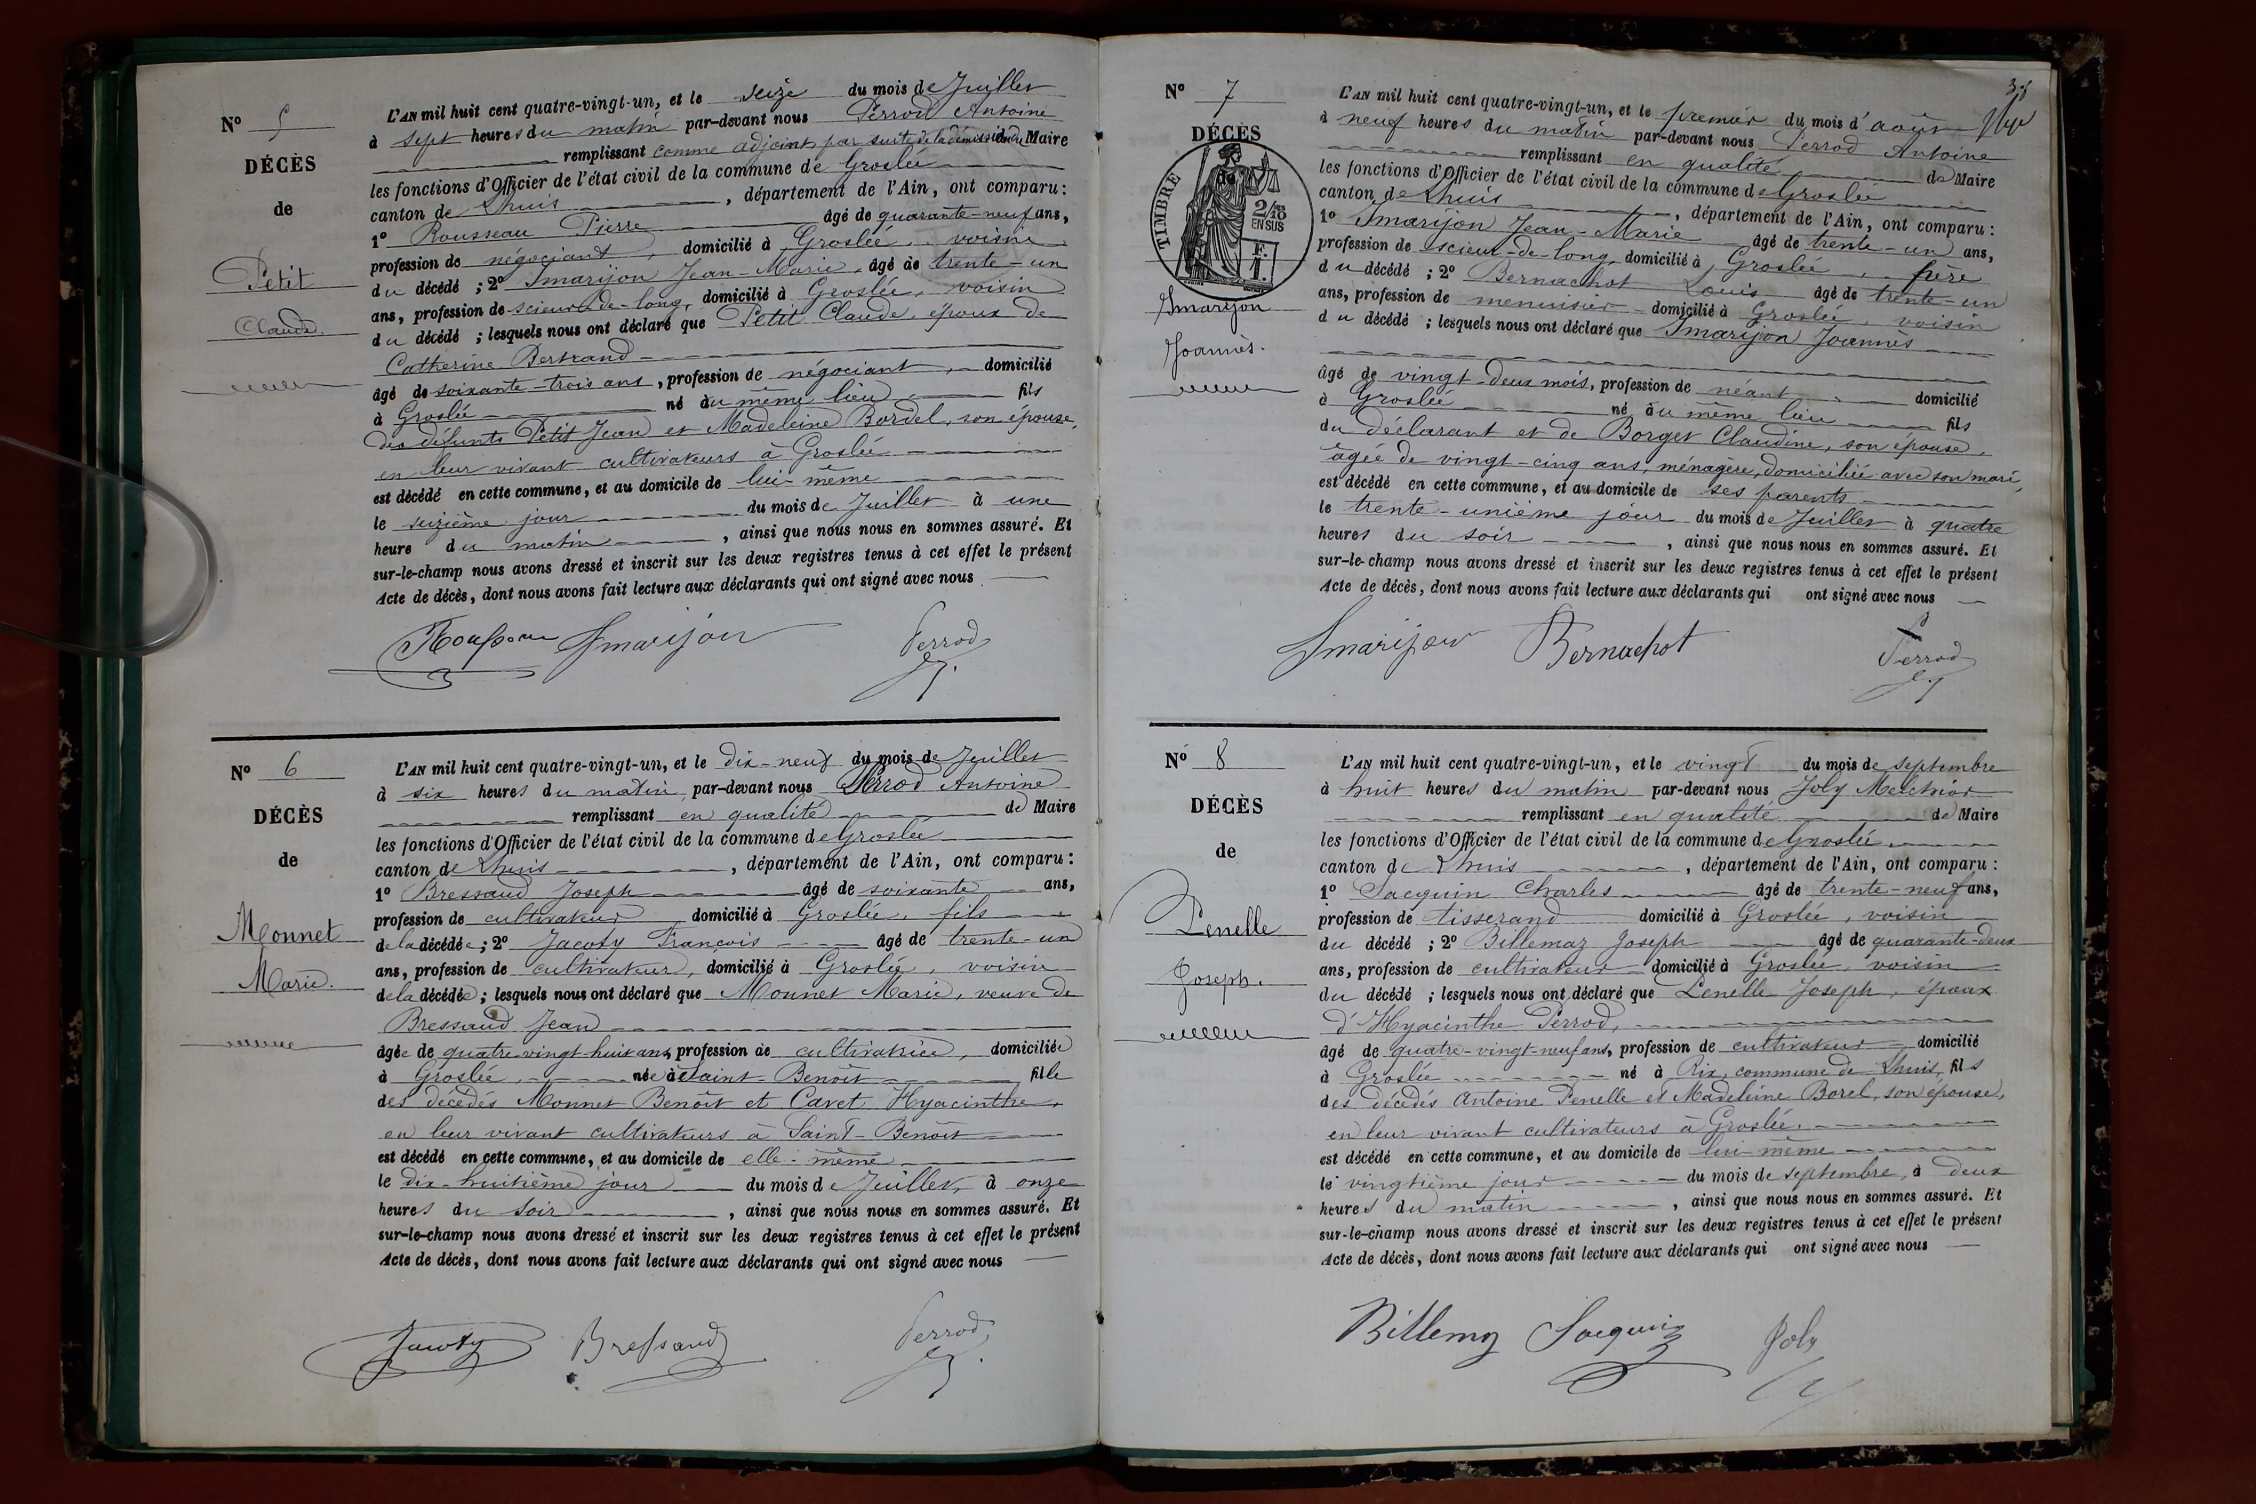 N° 5
DÉCÈS
de
Petit
Claude.
L'AN mil huit cent quatre-vingt-un, et le seize du mois de Juillet
à sept heures du matin par-devant nous Perrod Antoine
remplissant comme adjoint, par suite de la démission du Maire
les fonctions d'Officier de l'état civil de la commune de Groslée
canton de Lhuis, département de l'Ain, ont comparu:
1° Rousseau Pierre âgé de quarante-neuf ans,
profession de négociant, domicilié à Groslée, voisin
du décédé ; 2° Smarijon Jean-Marie, âgé de trente-un
ans, profession de scieur de-long, domicilié à Groslée, voisin
du décédé ; lesquels nous ont déclaré que Petit Claude, époux de
Catherine Bertrand
âgé de soixante-trois ans, profession de négociant, domicilié
à Groslée né au même lieu fils
des défunts Petit Jean et Madeleine Bordel, son épouse,
en leur vivant cultivateurs à Groslée
est décédé en cette commune, et au domicile de lui-même
le seizième jour du mois de Juillet à une
heure du matin, ainsi que nous nous en sommes assuré. Et
sur-le-champ nous avons dressé et inscrit sur les deux registres tenus à cet effet le présent
Acte de décès, dont nous avons fait lecture aux déclarants qui ont signé avec nous
Rousseau Smarijon Perrod
N° 6
DÉCÈS
de
Monnet
Marie.
L'AN mil huit cent quatre-vingt-un, et le dix-neuf du mois de Juillet
à six heures du matin, par-devant nous Perrod Antoine
remplissant en qualité de Maire
les fonctions d'Officier de l'état civil de la commune de Groslée
canton de Lhuis, département de l'Ain, ont comparu:
1° Bressaud Joseph âgé de soixante ans,
profession de cultivateur domicilié à Groslée, fils
de la décédée ; 2° Jacoty François âgé de trente-un
ans, profession de cultivateur, domicilié à Groslée, voisin
de la décédée ; lesquels nous ont déclaré que Monnet Marie, veuve de
Bressaud Jean
âgée de quatre-vingt-huit ans, profession de cultivatrice, domiciliée
à Groslée, née à Saint-Benoît fille
des décédés Monnet Benoît et Cavet Hyacinthe,
en leur vivant cultivateurs à Saint-Benoît
est décédé en cette commune, et au domicile de elle-même
le dix-huitième jour du mois de Juillet, à onze
heures du soir, ainsi que nous nous en sommes assuré. Et
sur-le-champ nous avons dressé et inscrit sur les deux registres tenus à cet effet le présent
Acte de décès, dont nous avons fait lecture aux déclarants qui ont signé avec nous
Jacoty Bressaud Perrod
38
N° 7
DÉCÈS
de
TIMBRE
2/10 EN SUS
Smarijon
Joannès.
L'AN mil huit cent quatre-vingt-un, et le premier du mois d'août
à neuf heures du matin par-devant nous Perrod Antoine
remplissant en qualité de Maire
les fonctions d'Officier de l'état civil de la commune de Groslée
canton de Lhuis, département de l'Ain, ont comparu:
1° Smarijon Jean-Marie âgé de trente-un ans,
profession de scieur-de-long, domicilié à Groslée, père
du décédé ; 2° Bernachot Louis âgé de trente-un
ans, profession de menuisier domicilié à Groslée, voisin
du décédé ; lesquels nous ont déclaré que Smarijon Joannès
âgé de vingt-deux mois, profession de néant domicilié
à Groslée né au même lieu fils
du déclarant et de Borget Claudine, son épouse,
âgée de vingt-cinq ans, ménagère, domiciliée avec son mari,
est décédé en cette commune, et au domicile de ses parents
le trente-unième jour du mois de Juillet à quatre
heures du soir, ainsi que nous nous en sommes assuré. Et
sur-le-champ nous avons dressé et inscrit sur les deux registres tenus à cet effet le présent
Acte de décès, dont nous avons fait lecture aux déclarants qui ont signé avec nous
Smarijon Bernachot Perrod
N° 8
DÉCÈS
de
Penelle
Joseph.
L'AN mil huit cent quatre-vingt-un, et le vingt du mois de septembre
à huit heures du matin par-devant nous Joly Melchior
remplissant en qualité de Maire
les fonctions d'Officier de l'état civil de la commune de Groslée
canton de Lhuis, département de l'Ain, ont comparu:
1° Sacquin Charles âgé de trente-neuf ans,
profession de tisserand domicilié à Groslée, voisin
du décédé ; 2° Billemaz Joseph âgé de quarante-deux
ans, profession de cultivateur domicilié à Groslée, voisin
du décédé ; lesquels nous ont déclaré que Penelle Joseph, époux
d'Hyacinthe Perrod,
âgé de quatre-vingt-neuf ans, profession de cultivateur domicilié
à Groslée né à Rix, commune de Lhuis, fils
des décédés Antoine Penelle et Madeleine Borel, son épouse,
en leur vivant cultivateurs à Groslée.
est décédé en cette commune, et au domicile de lui-même
le vingtième jour du mois de septembre, à deux
heures du matin, ainsi que nous nous en sommes assuré. Et
sur-le-champ nous avons dressé et inscrit sur les deux registres tenus à cet effet le présent
Acte de décès, dont nous avons fait lecture aux déclarants qui ont signé avec nous
Billemaz Sacquin Joly